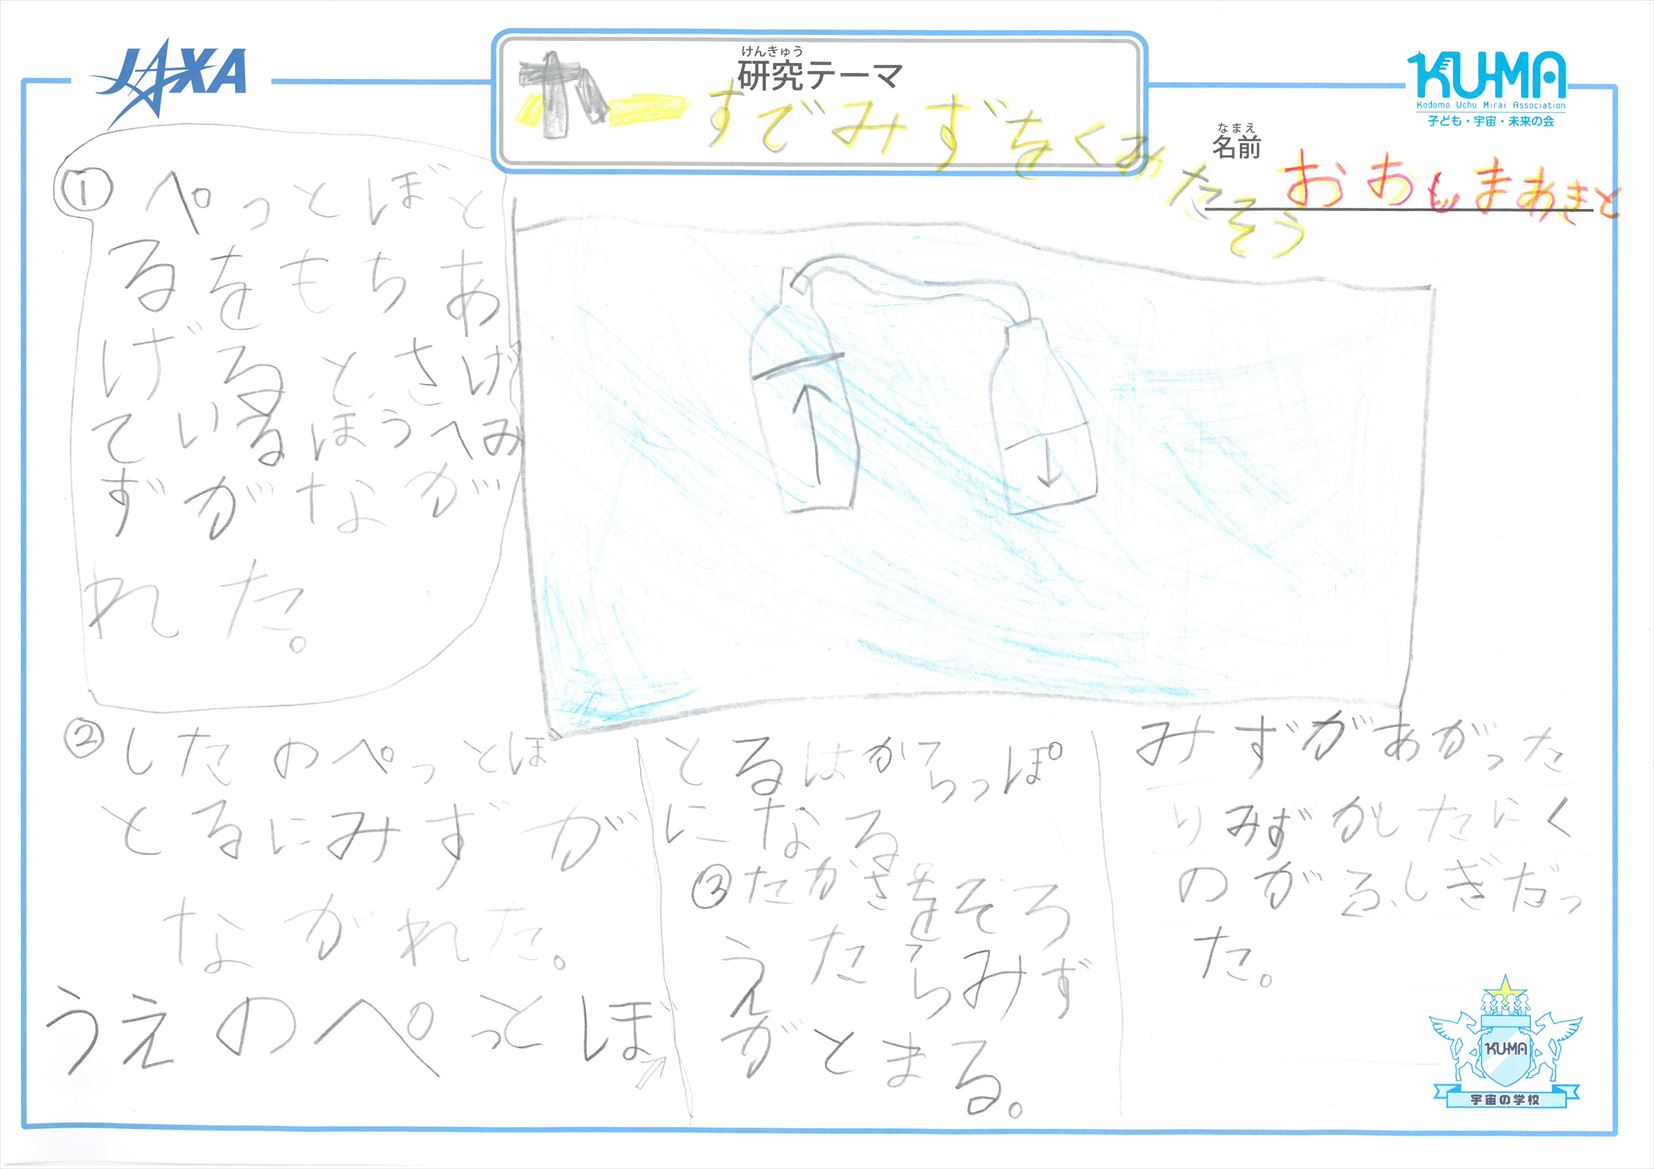 JAXA
けんきゅう
研究テーマ
ホーすでみずをくみたそう
KU-MA
Kodomo Uchu Mirai Association
子ども・宇宙・未来の会
なまえ
名前
おおしまあきと
① ぺっとぼと
るをもちあ
げるとさげ
ているほうへみ
ずがなが
れた。
② したのぺっとほ
とるにみずが
ながれた。
うえのぺっとぼ
とるはからっぽ
になる
③ たかさをそろ
えたらみず
がとまる。
みずがあがった
りみずがしたにく
のがふしぎだっ
た。
KU-MA
宇宙の学校